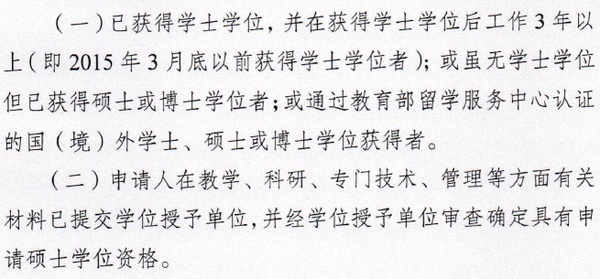 （一）已获得学士学位，并在获得学士学位后工作 3 年以
上（即 2015 年 3 月底以前获得学士学位者）；或虽无学士学位
但已获得硕士或博士学位者；或通过教育部留学服务中心认证
的国（境）外学士、硕士或博士学位获得者。
（二）申请人在教学、科研、专门技术、管理等方面有关
材料已提交学位授予单位，并经学位授予单位审查确定具有申
请硕士学位资格。